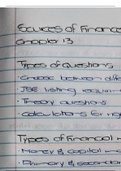 Sources of Finance
Chapter 13
Types of Questions
Choose between differ
JSE listing require
Theory questions
calculations for righ
Types of Financial m
Money & capital ma
Primary & secondar